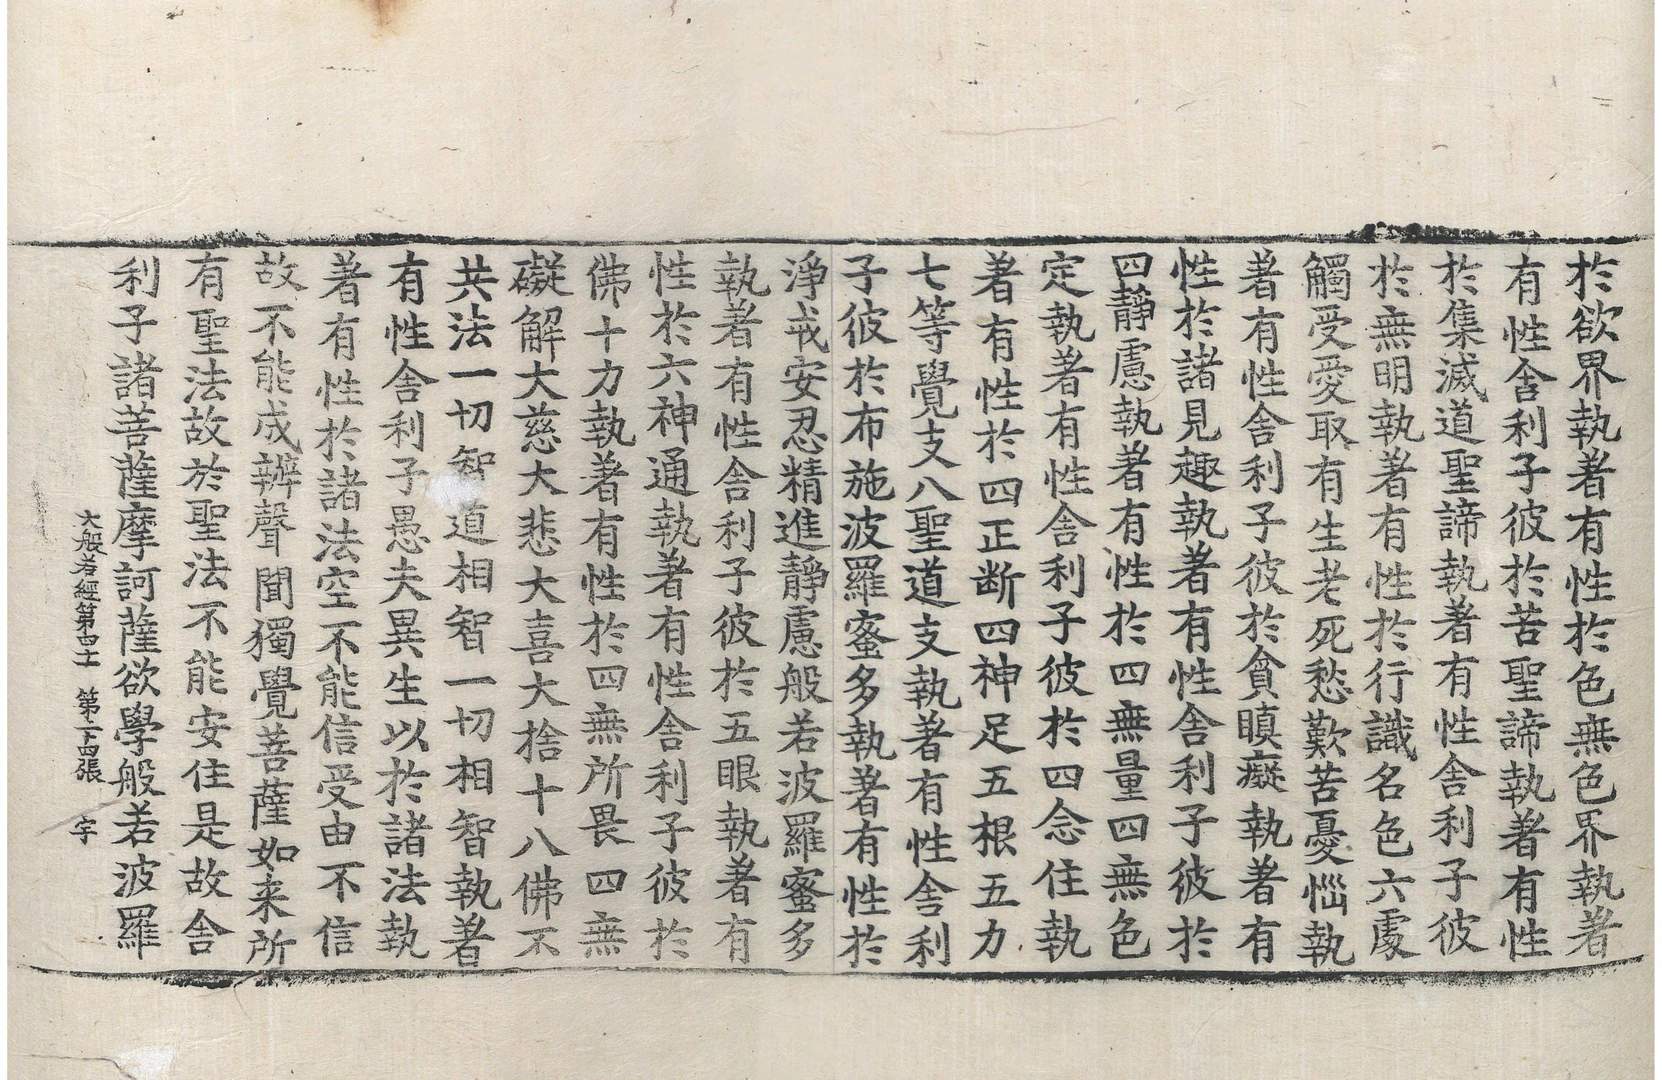 於欲界執著有性於色無色界執著
有性舍利子彼於苦聖諦執著有性
於集滅道聖諦執著有性舍利子彼
於無明執著有性於行識名色六處
觸受愛取有生老死愁歎苦憂惱執
著有性舍利子彼於貪瞋癡執著有
性於諸見趣執著有性舍利子彼於
四靜慮執著有性於四無量四無色
定執著有性舍利子彼於四念住執
著有性於四正断四神足五根五力
七等覺支八聖道支執著有性舍利
子彼於布施波羅蜜多執著有性於
淨戒安忍精進靜慮般若波羅蜜多
執著有性舍利子彼於五眼執著有
性於六神通執著有性舍利子彼於
佛十力執著有性於四無所畏四無
礙解大慈大悲大喜大捨十八佛不
共法一切智道相智一切相智執著
有性舍利子愚夫異生以於諸法執
著有性於諸法空不能信受由不信
故不能成辦聲聞獨覺菩薩如来所
有聖法故於聖法不能安住是故舍
利子諸菩薩摩訶薩欲學般若波羅
大般若經第四十 第二十四張 宇